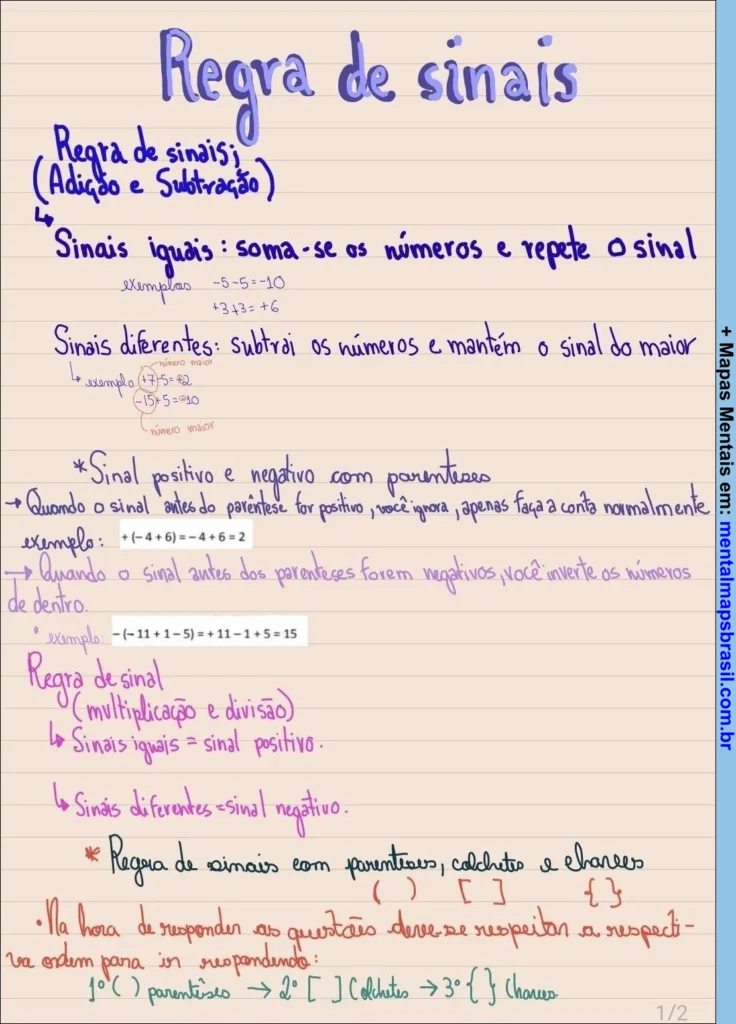 Regra de sinais
Regra de sinais;
(Adição e Subtração)
Sinais iguais: soma-se os números e repete o sinal
exemplos -5-5=-10
+3+3=+6
Sinais diferentes: subtrai os números e mantém o sinal do maior
número maior
↳ exemplo +7-5=+2
-15+5=-10
número maior
*Sinal positivo e negativo com parenteses
→ Quando o sinal antes do parêntese for positivo, você ignora, apenas faça a conta normalmente
exemplo: + (– 4 + 6) = – 4 + 6 = 2
→ Quando o sinal antes dos parenteses forem negativos, você inverte os números
de dentro.
° exemplo: – (– 11 + 1 – 5) = + 11 – 1 + 5 = 15
Regra de sinal
(multiplicação e divisão)
↳ Sinais iguais = sinal positivo.
↳ Sinais diferentes = sinal negativo.
* Regra de sinais com parenteses, colchetes e chaves
( ) [ ] { }
•Na hora de responder as questões deve-se respeitar a respecti-
va ordem para ir respondendo:
1º ( ) parentêses → 2º [ ] Colchetes → 3º { } Chaves
1/2
+ Mapas Mentais em: mentalmapsbrasil.com.br